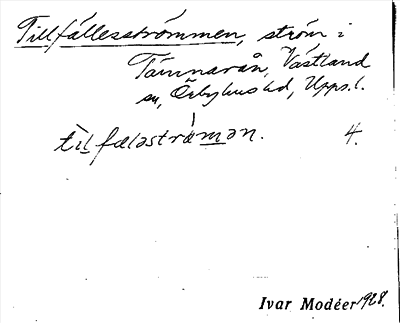 Tillfällesströmmen, ström i
Tämnarån, Västland
sn, Örbyhus hd, Upps. l.
tìlfæləstrǻmən. 4.
Ivar Modéer 1928.